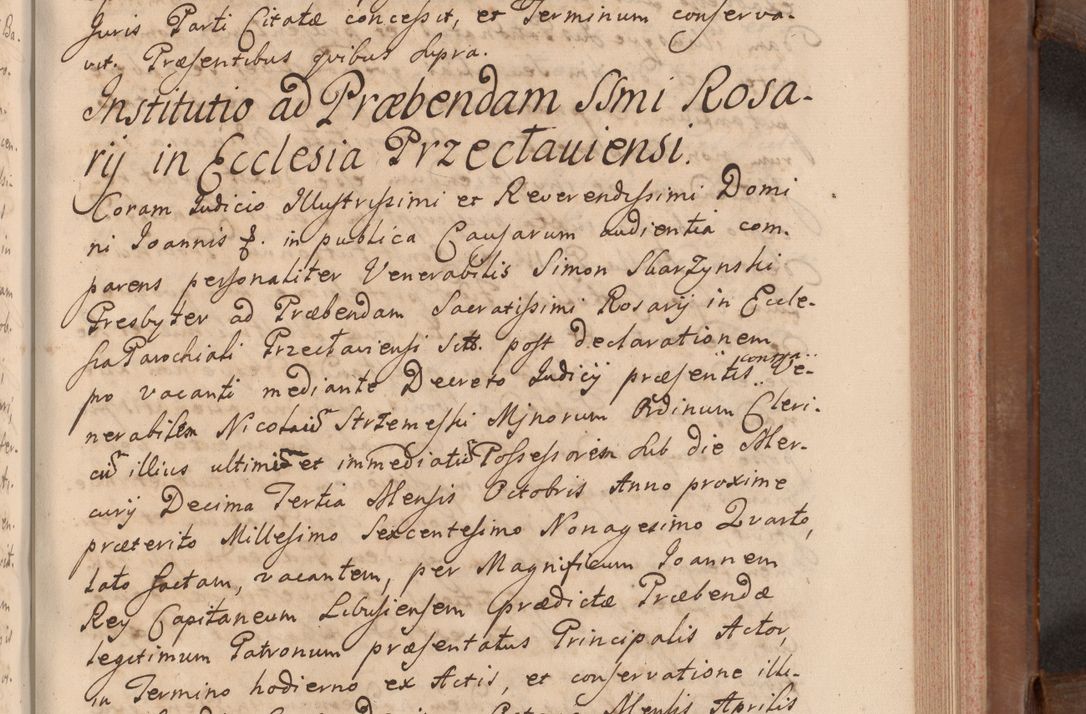 Juris Parti Citatæ concessit, et Terminum conserva-
vit. Præsentibus quibus supra.
Institutio ad Præbendam SSmi Rosa-
rij in Ecclesia Przecłaviensi.
Coram Judicio Illustrissimi et Reverendissimi Domi
ni Joannis in publica Causarum audientia com-
parens personaliter Venerabilis Simon Skarzynski
Presbyter ad Præbendam Sacratissimi Rosarij in Eccle-
sia Parochiali Przecłaviensi post declarationem
pro vacanti mediante Decreto Judicij præsentis contra Ve-
nerabilem Nicolaum Strzemeski Mjnorum Ordinum Cleri-
cum illius ultimum et immediatum Possessorem sub die Mer-
curij Decima Tertia Mensis Octobris Anno proxime
præterito Millesimo Sexcentesimo Nonagesimo Quarto,
lato factam, vacantem, per Magnificum Joannem
Rey Capitaneum Libusiensem prædictæ Præbendæ
legitimum Patronum præsentatus Principalis Actor,
in Termino hodierno ex Actis, et conservatione illi-
Mensis Aprilis